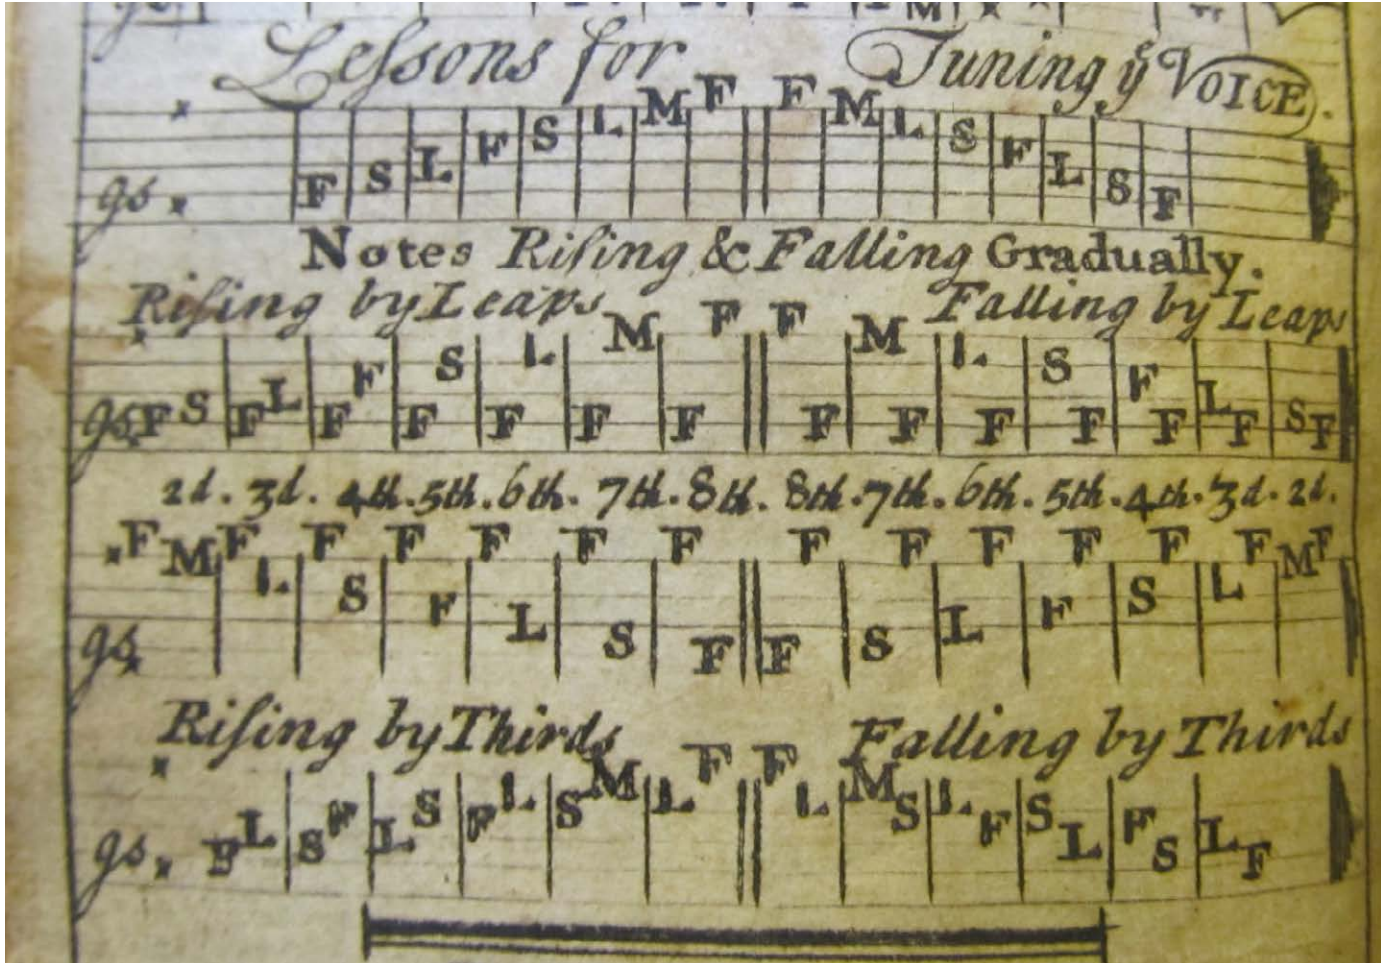 Leſsons for Tuning yͤ VOICE.
M F F M
F S L F S L L S F L S F
gs
Notes Riſing & Falling Gradually.
Riſing by Leaps Falling by Leaps
gs F S F L F F F S F L F M F F F F M F L F S F F F L F S F
2d. 3d. 4th. 5th. 6th. 7th. 8th. 8th. 7th. 6th. 5th. 4th. 3d. 2d.
F M F L F S F F F L F S F F F F F S F L F F F S F L M F
gs
Riſing by Thirds Falling by Thirds
gs F L S F L S F L S M L F F L M S L F S L F S L F